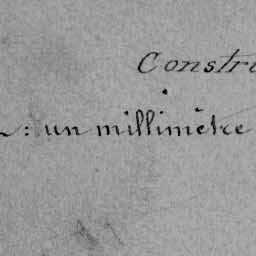 Constru
: un millimètre